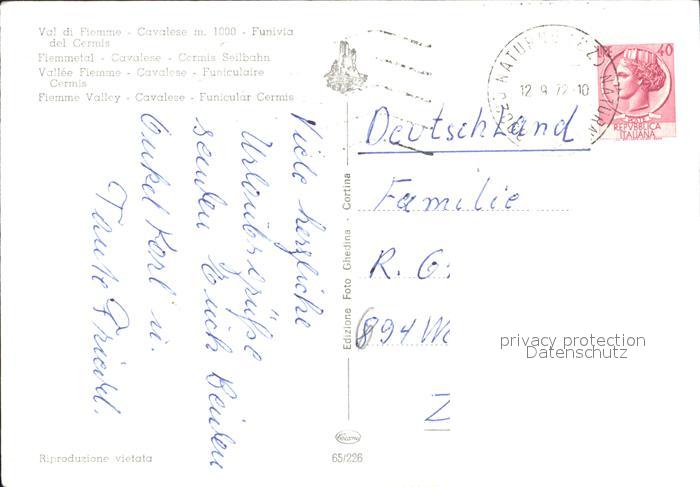 Val di Fiemme - Cavalese m. 1000 - Funivia
del Cermis
Fiemmetal - Cavalese - Cermis Seilbahn
Vallée Fiemme - Cavalese - Funiculaire
Cermis
Fiemme Valley - Cavalese - Funicular Cermis
Viele herzliche
Urlaubsgrüße
senden Euch Beiden
Onkel Karl u.
Tante Friedel.
Edizione Foto Ghedina - Cortina
NATURNO (BZ) NATURNS
12.9.72-10
40
POSTE
REPVBBLICA
ITALIANA
Deutschland
Familie
R. G
894 W
privacy protection
Datenschutz
Riproduzione vietata
65/226